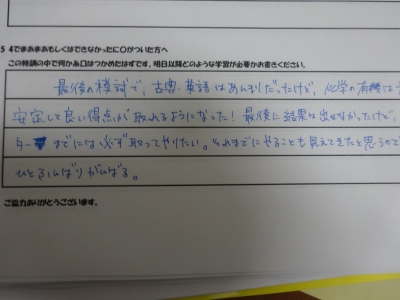 5 4でまあまあもしくはできなかったに〇がついた方へ
この特訓の中で何か糸口はつかめたはずです。明日以降どのような学習が必要かお書きください。
最後の模試で、古典・英語はあんまりだったけど、化学の有機は
安定して良い得点が取れるようになった！最後に結果は出せなかったけど、
ターまでには必ず取ってやりたい。それまでにやることも見えてきたと思うので
ひとふんばりがんばる。
ご協力ありがとうございます。